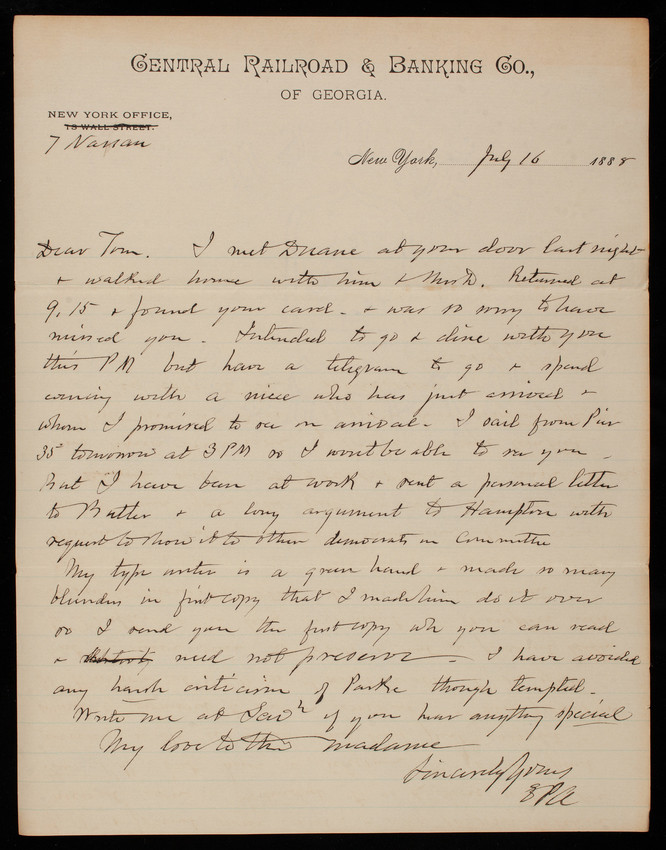 CENTRAL RAILROAD & BANKING CO.,
OF GEORGIA.
NEW YORK OFFICE,
13 WALL STREET.
7 Nassau
New York, July 16 1888
Dear Tom. I met Duane at your door last night
+ walked home with him + Mrs D. Returned at
9.15 + found your card - + was so sorry to have
missed you - Intended to go + dine with you
this PM but have a telegram to go + spend
evening with a niece who has just arrived +
whom I promised to see on arrival - I sail from Pier
35 tomorrow at 3 PM so I wont be able to see you -
But I have been at work + sent a personal letter
to Butler + a long argument to Hampton with
request to show it to other democrats on Committee
My type writer is a green hand + made so many
blunders in first copy that I made him do it over
so I send you the first copy wh you can read
+ need not preserve - I have avoided
any harsh criticism of Parke though tempted -
Write me at Savh if you hear anything special
My love to the madame
Sincerely Yours
EPA